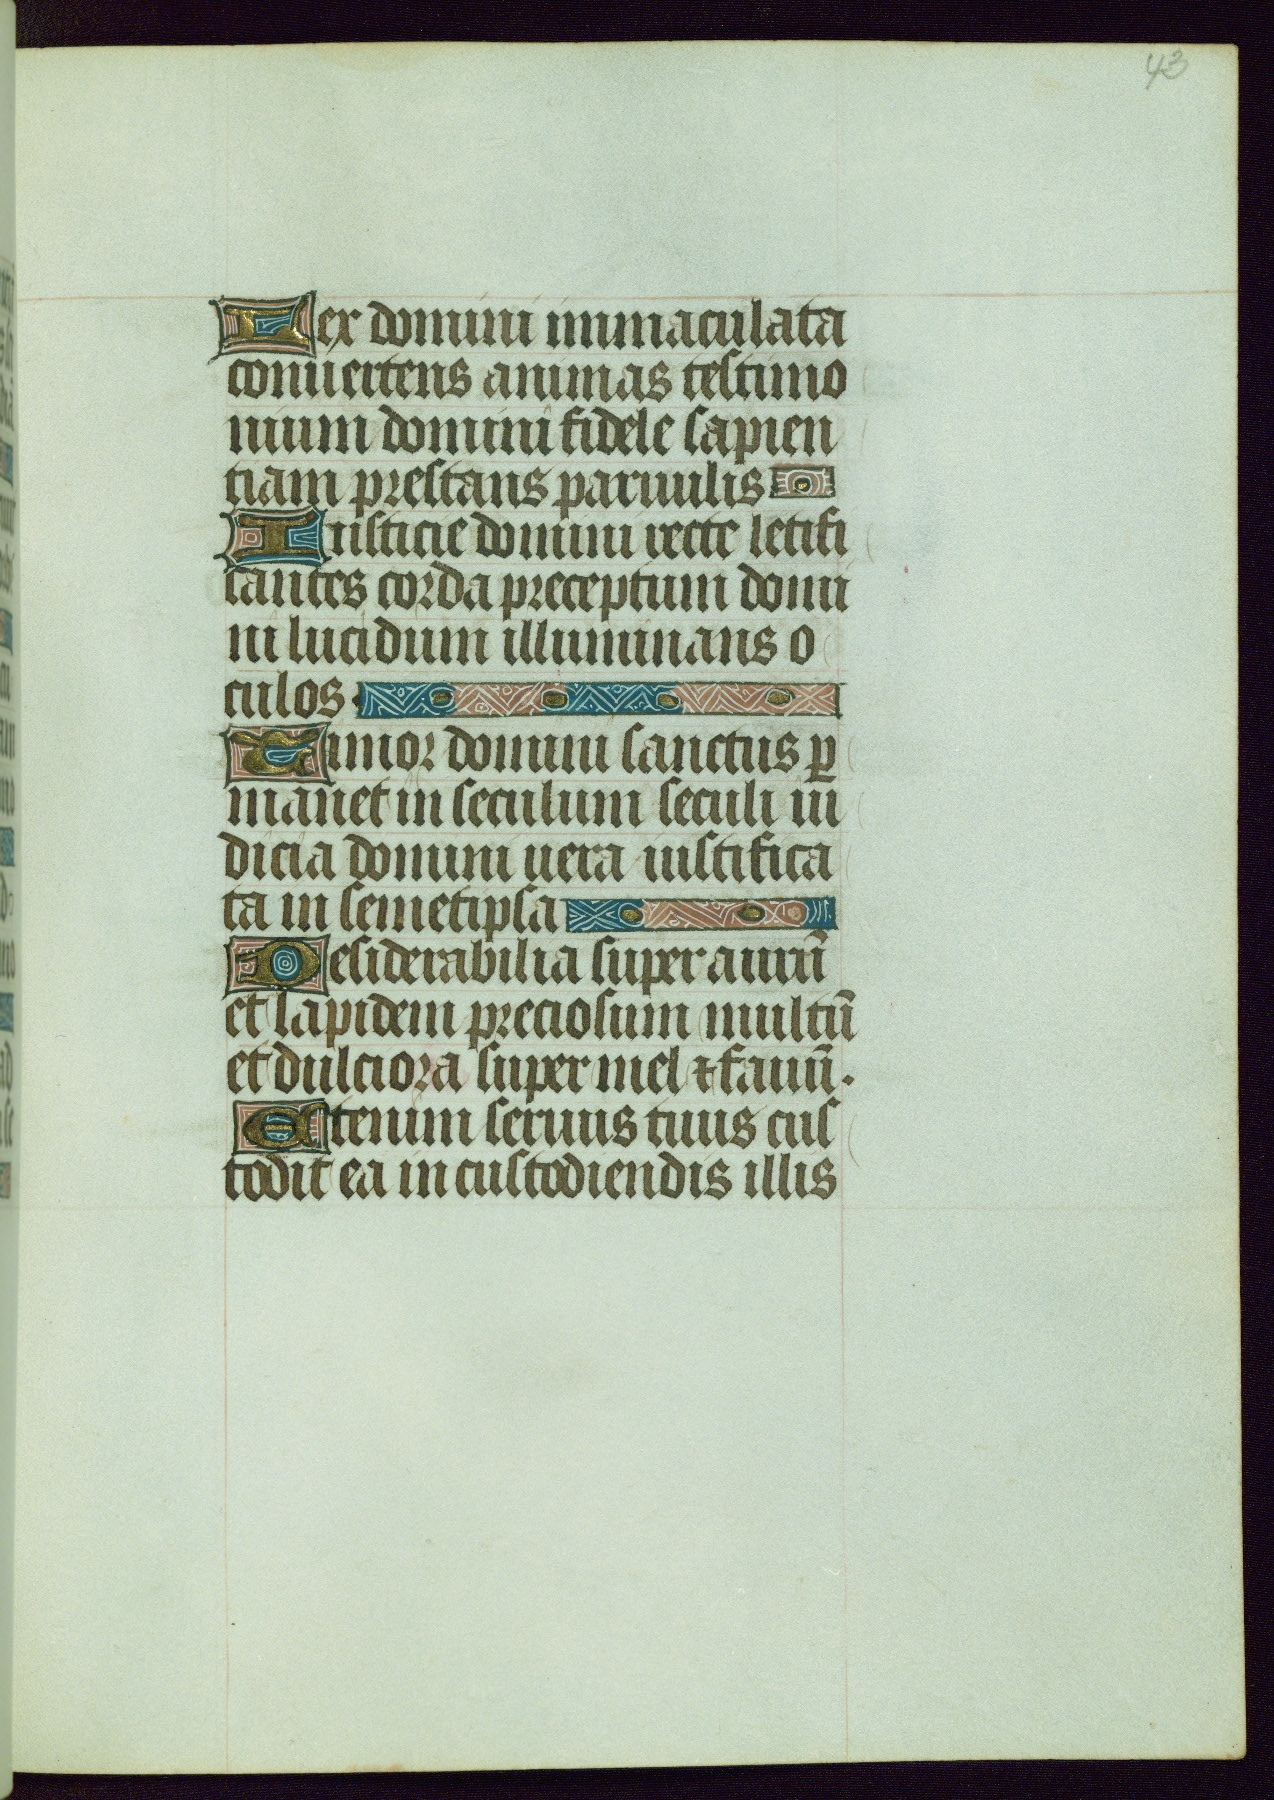 43
Lex domini immaculata
conuertens animas testimo
nium domini fidele sapien
tiam prestans paruulis
Iusticie domini recte letifi
cantes corda preceptum domi
ni lucidum illuminans o
culos
Timor domini sanctus ꝑ
manet in seculum seculi iu
dicia domini uera iustifica
ta in semetipsa
Desiderabilia super aurū
et lapidem preciosum multū
et dulciora super mel ⁊ fauū.
Etenim seruus tuus cus
todit ea in custodiendis illis